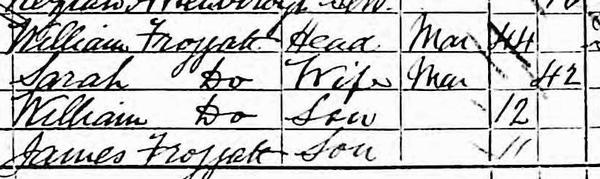 William Froggatt Head Mar 44
Sarah Do Wife Mar 42
William Do Son 12
James Froggatt Son 11